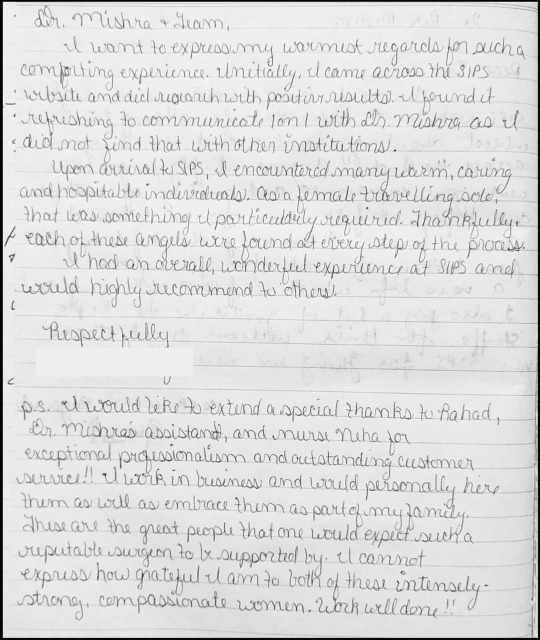 Dr. Mishra & Team,
I want to express my warmest regards for such a
comforting experience. Initially, I came across the SIPS
website and did research with positive results. I found it
refreshing to communicate 1 on 1 with Dr. Mishra as I
did not find that with other institutions.
Upon arrival to SIPS, I encountered many warm, caring
and hospitable individuals. As a female travelling solo,
that was something I particularly required. Thankfully,
each of these angels were found at every step of the process.
I had an overall, wonderful experience at SIPS and
would highly recommend to others!
Respectfully
p.s. I would like to extend a special thanks to Rahad,
Dr. Mishras assistant, and nurse Neha for
exceptional professionalism and outstanding customer
service!! I work in business and would personally here
them as well as embrace them as part of my family.
These are the great people that one would expect such a
reputable surgeon to be supported by. I cannot
express how grateful I am to both of these intensely-
strong, compassionate women. Work well done!!